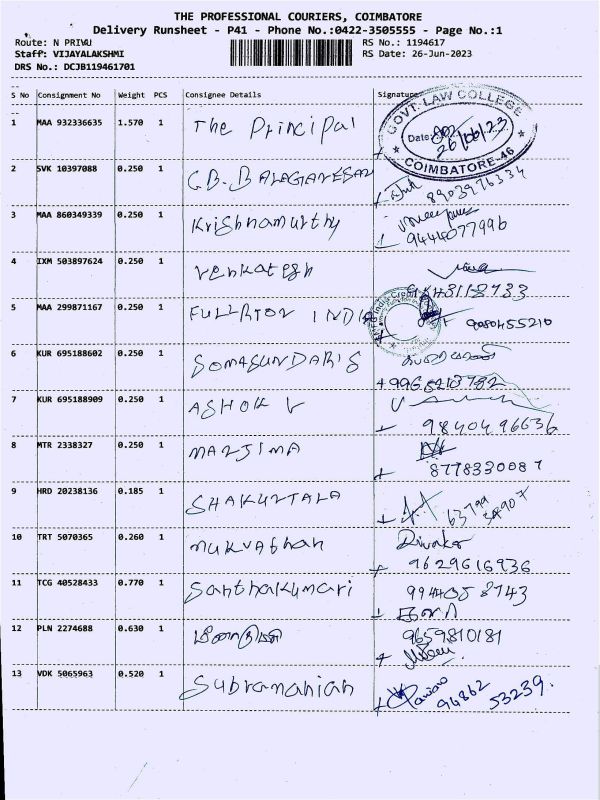 THE PROFESSIONAL COURIERS, COIMBATORE
Delivery Runsheet - P41 - Phone No.:0422-3505555 - Page No.:1
Route: N PRIYA RS No.: 1194617
Staff: VIJAYALAKSHMI RS Date: 26-Jun-2023
DRS No.: DCJB119461701
S No Consignment No Weight PCS Consignee Details Signature
1 MAA 932336635 1.570 1 The Principal
GOVT. LAW COLLEGE
Date: 26/06/23
COIMBATORE-46
2 SVK 10397088 0.250 1 G.B. BALAGANESAN
8903976334
3 MAA 860349339 0.250 1 Krishnamurthy
9444077996
4 IXM 503897624 0.250 1 Venkatesh
5 MAA 299871167 0.250 1 FULLRTON INDIA
9080455210
6 KUR 695188602 0.250 1 SOMASUNDARIS
+9965213782
7 KUR 695188909 0.250 1 ASHOK V
9840496636
8 MTR 2338327 0.250 1 NAZJIMA
8778330087
9 HRD 20238136 0.185 1 SHAKUNTALA
63799 34907
10 TRT 5070365 0.260 1 mukvathan
Divakar
9629616936
11 TCG 40528433 0.770 1 Santhakumari
9944058743
12 PLN 2274688 0.630 1
9659810181
13 VDK 5065963 0.520 1 Subramanian
94862 53239.